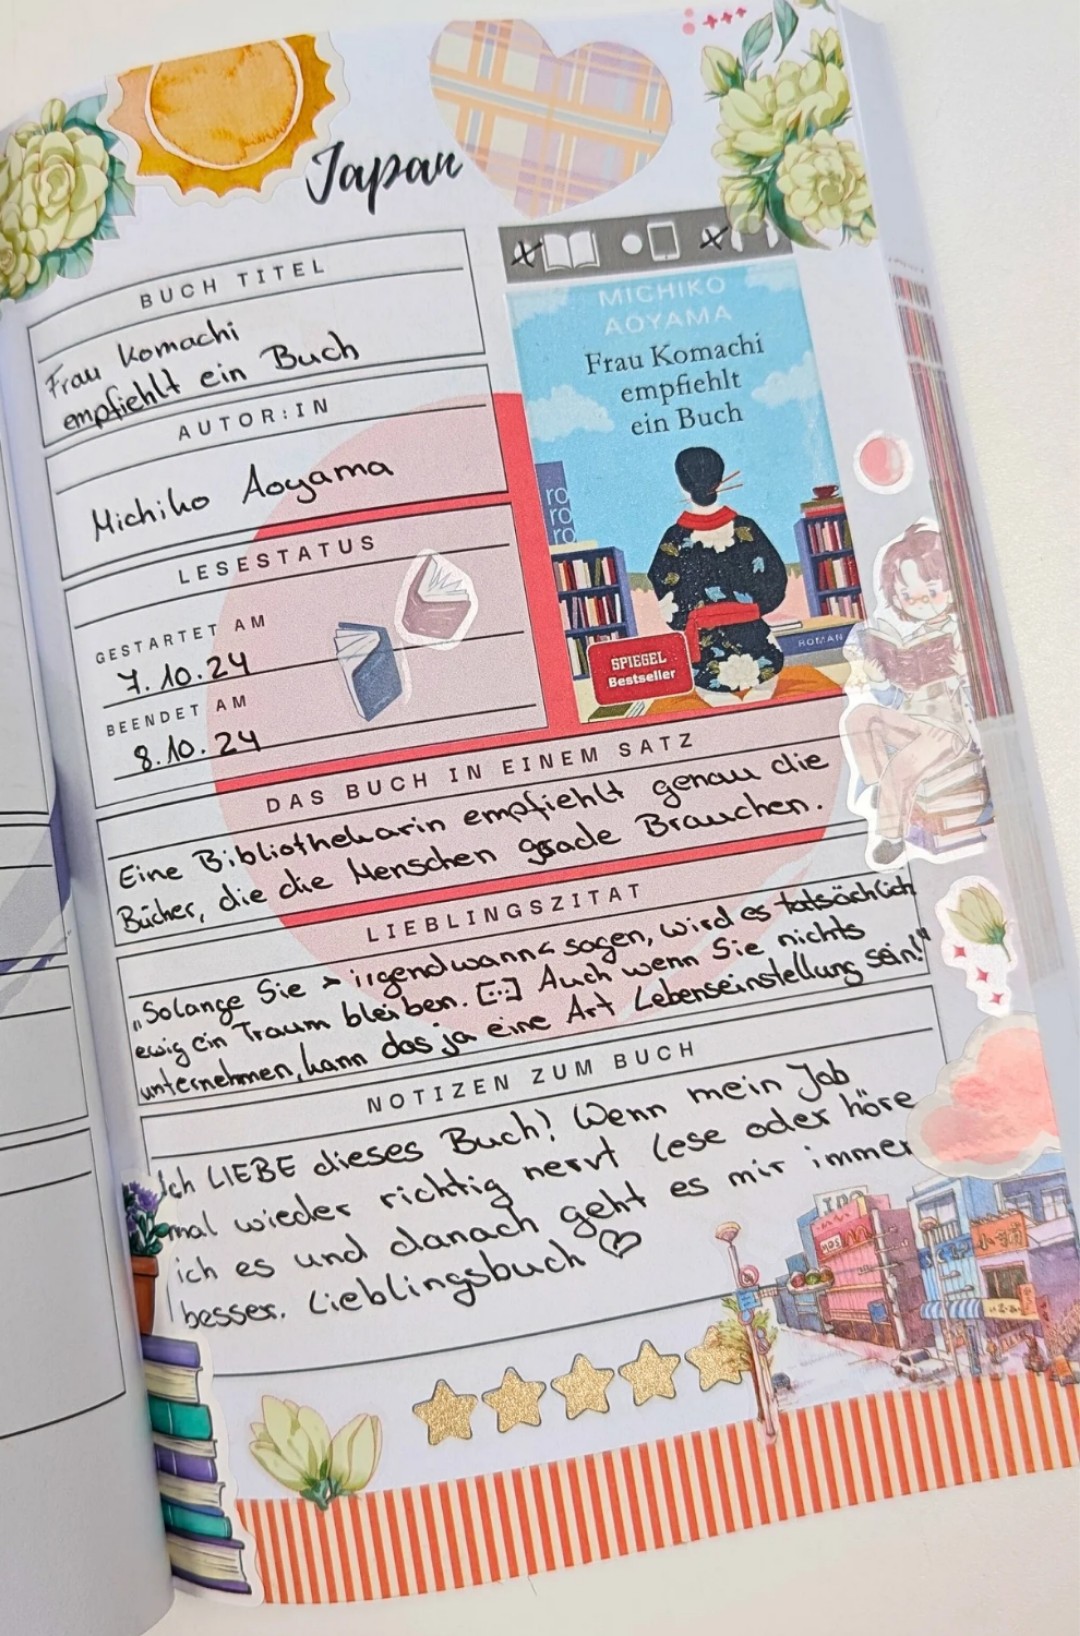 Japan
BUCH TITEL
Frau Komachi
empfiehlt ein Buch
AUTOR:IN
Michiko Aoyama
LESESTATUS
GESTARTET AM
7.10.24
BEENDET AM
8.10.24
MICHIKO
AOYAMA
Frau Komachi
empfiehlt
ein Buch
ro
ro
ro
ROMAN
SPIEGEL
Bestseller
DAS BUCH IN EINEM SATZ
Eine Bibliothekarin empfiehlt genau die
Bücher, die die Menschen grade Brauchen.
LIEBLINGSZITAT
„Solange Sie >irgendwann< sagen, wird es tatsächlich
ewig ein Traum bleiben. [...] Auch wenn Sie nichts
unternehmen, kann das ja eine Art Lebenseinstellung sein!"
NOTIZEN ZUM BUCH
Ich LIEBE dieses Buch! Wenn mein Job
mal wieder richtig nervt lese oder höre
ich es und danach geht es mir immer
besser. Lieblingsbuch ♡